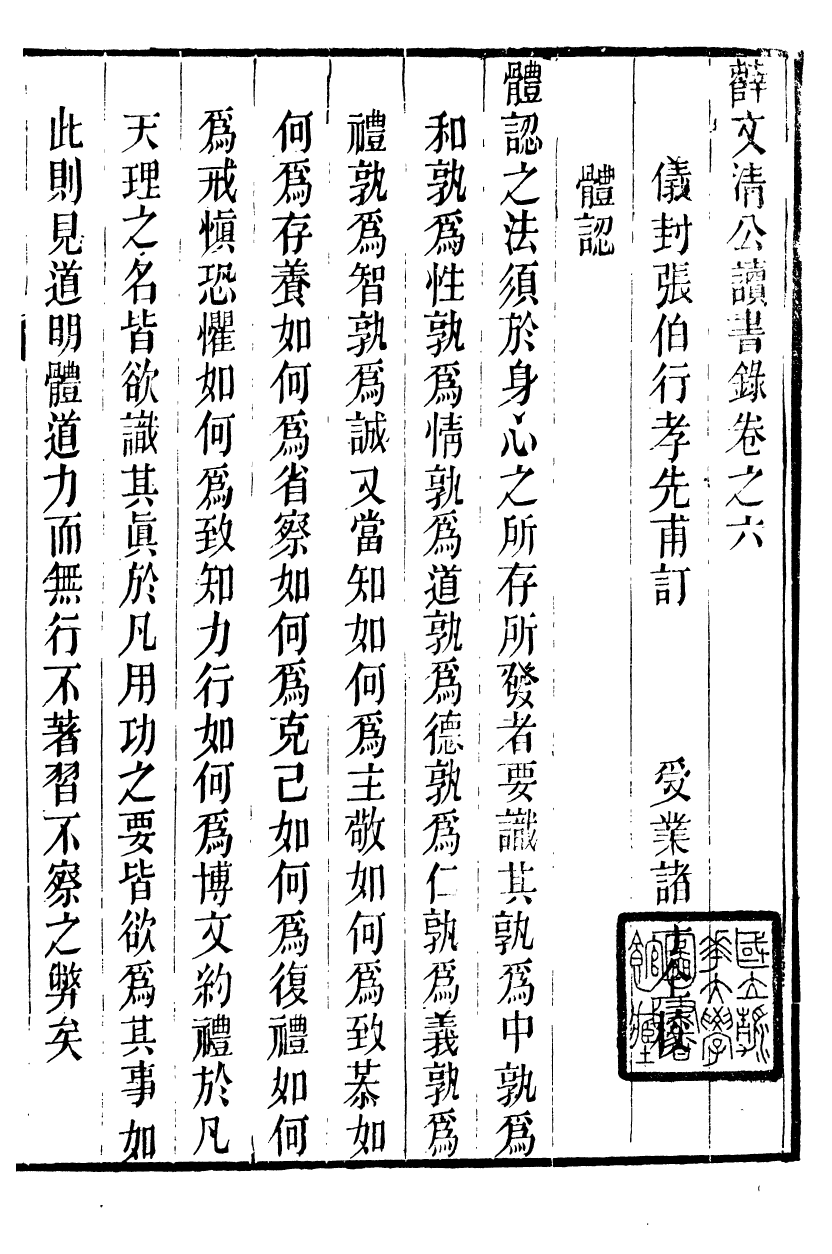 薛文清公讀書錄卷之六
儀封張伯行孝先甫訂　受業諸子仝校
體認
體認之法須於身心之所存所發者要識其孰爲中孰爲
和孰爲性孰爲情孰爲道孰爲德孰爲仁孰爲義孰爲
禮孰爲智孰爲誠又當知如何爲主敬如何爲致恭如
何爲存養如何爲省察如何爲克己如何爲復禮如何
爲戒愼恐懼如何爲致知力行如何爲博文約禮於凡
天理之名皆欲識其眞於凡用功之要皆欲爲其事如
此則見道明體道力而無行不著習不察之弊矣
國立清
華大學
圖書
館藏